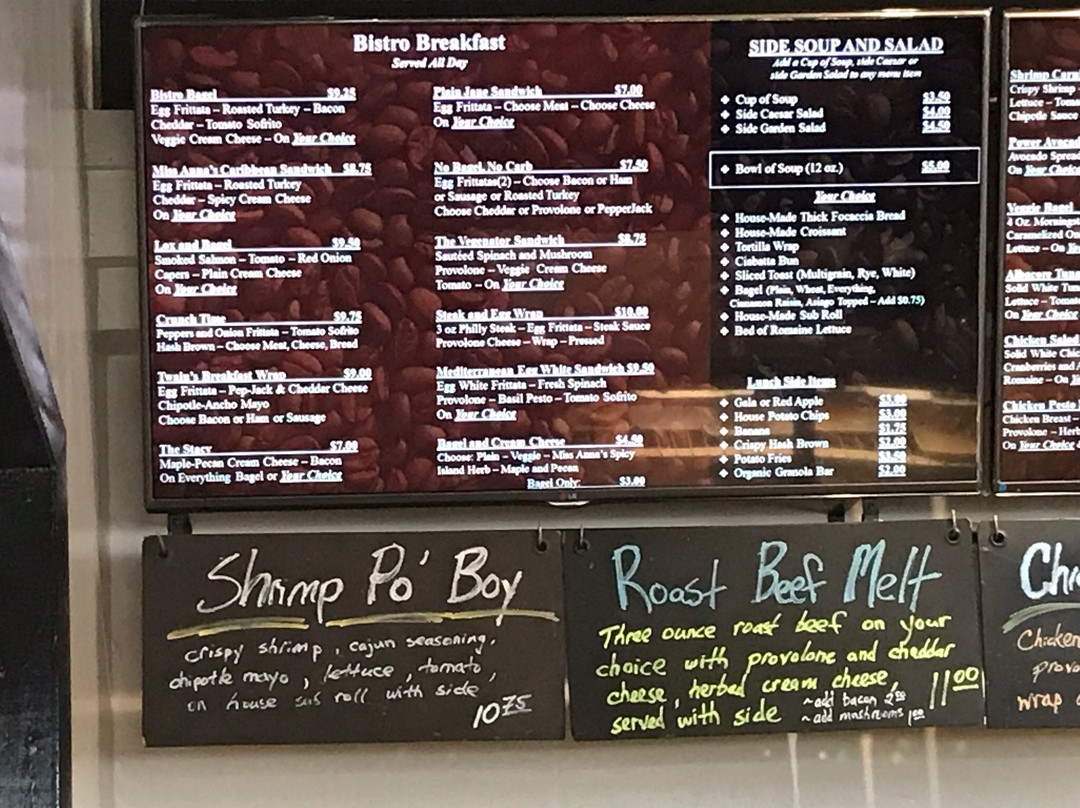 Bistro Breakfast
Served All Day
Bistro Bagel $9.25
Egg Frittata – Roasted Turkey – Bacon
Cheddar – Tomato Sofrito
Veggie Cream Cheese – On Your Choice
Miss Anna's Caribbean Sandwich $8.75
Egg Frittata – Roasted Turkey
Cheddar – Spicy Cream Cheese
On Your Choice
Lox and Bagel $9.50
Smoked Salmon – Tomato – Red Onion
Capers – Plain Cream Cheese
On Your Choice
Crunch Time $9.75
Peppers and Onion Frittata – Tomato Sofrito
Hash Brown – Choose Meat, Cheese, Bread
Twain's Breakfast Wrap $9.00
Egg Frittata – Pep-Jack & Cheddar Cheese
Chipotle-Ancho Mayo
Choose Bacon or Ham or Sausage
The Stacy $7.00
Maple-Pecan Cream Cheese – Bacon
On Everything Bagel or Your Choice
Plain Jane Sandwich $7.00
Egg Frittata – Choose Meat – Choose Cheese
On Your Choice
No Bagel, No Carb $7.50
Egg Frittatas(2) – Choose Bacon or Ham
or Sausage or Roasted Turkey
Choose Cheddar or Provolone or PepperJack
The Vegenator Sandwich $8.75
Sautéed Spinach and Mushroom
Provolone – Veggie Cream Cheese
Tomato – On Your Choice
Steak and Egg Wrap $10.00
3 oz Philly Steak – Egg Frittata – Steak Sauce
Provolone Cheese – Wrap – Pressed
Mediterranean Egg White Sandwich $9.50
Egg White Frittata – Fresh Spinach
Provolone – Basil Pesto – Tomato Sofrito
On Your Choice
Bagel and Cream Cheese $4.50
Choose: Plain – Veggie – Miss Anna's Spicy
Island Herb – Maple and Pecan
Bagel Only: $3.00
SIDE SOUP AND SALAD
Add a Cup of Soup, side Caesar or
side Garden Salad to any menu item
❖ Cup of Soup $3.50
❖ Side Caesar Salad $4.00
❖ Side Garden Salad $4.50
❖ Bowl of Soup (12 oz.) $5.00
Your Choice
❖ House-Made Thick Focaccia Bread
❖ House-Made Croissant
❖ Tortilla Wrap
❖ Ciabatta Bun
❖ Sliced Toast (Multigrain, Rye, White)
❖ Bagel (Plain, Wheat, Everything,
Cinnamon Raisin, Asiago Topped – Add $0.75)
❖ House-Made Sub Roll
❖ Bed of Romaine Lettuce
Lunch Side Items
❖ Gala or Red Apple $3.00
❖ House Potato Chips $3.00
❖ Banana $1.75
❖ Crispy Hash Brown $2.00
❖ Potato Fries $3.50
❖ Organic Granola Bar $2.00
Shrimp
Crispy Shrimp –
Lettuce –
Chipotle Sauce
Power
Avocado
On Your Choice
Veggie Bagel
4 Oz.
Caramelized
Lettuce – On
Albacore
Solid White
Lettuce –
On Your Choice
Chicken Salad
Solid White
Cranberries and
Romaine – On
Chicken Pesto
Chicken Breast –
Provolone –
On Your Choice
LG
Shrimp Po' Boy
crispy shrimp, cajun seasoning,
chipotle mayo, lettuce, tomato,
on house sub roll with side
10 75
Roast Beef Melt
Three ounce roast beef on your
choice with provolone and cheddar
cheese, herbed cream cheese,
served with side
~add bacon 2 00
~add mushrooms 1 00
11 00
Chicken
wrap